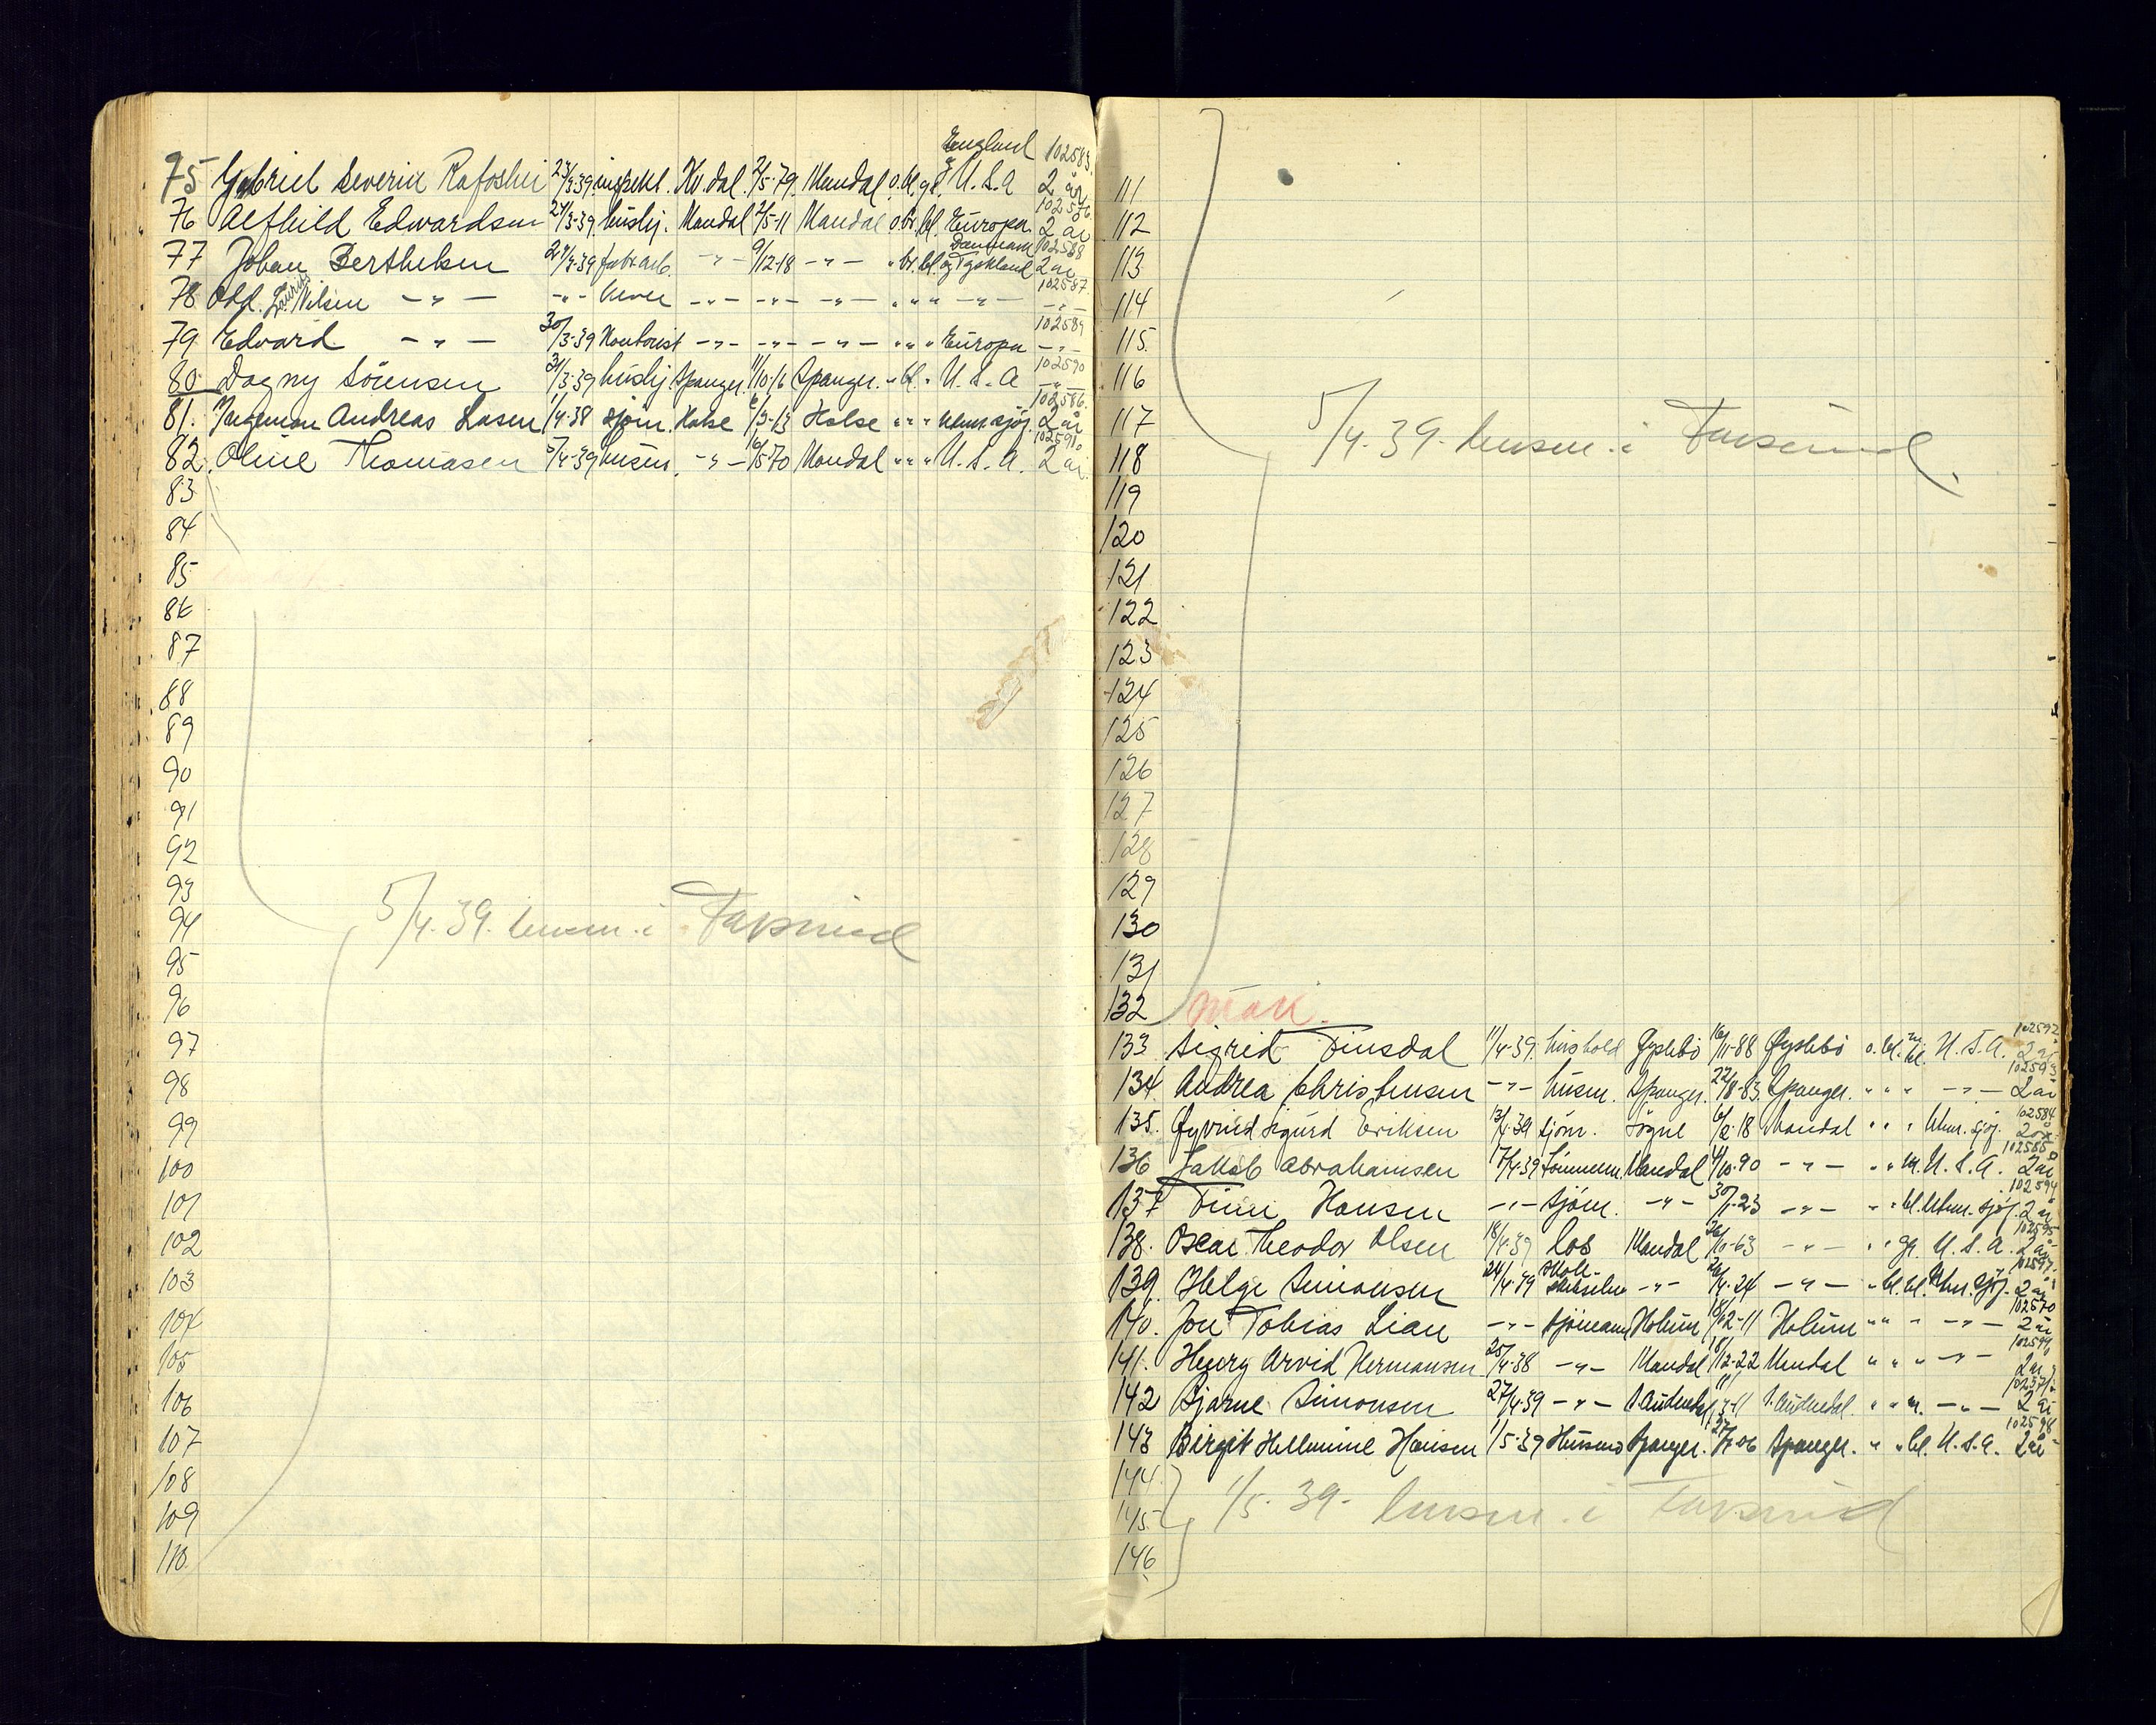 England 102583
75 Gabriel Severin Rafoshei 23/3-39. inspekt. Kv.dal. 2/5-79. Mandal. o. bl. g U.S.A 2 år
102576.
76 Alfhild Edwardsen 24/3-39 hushj. Mandal 2/5-11 Mandal o. br. bl. Europa. 2 år
Danmark 102588
77 Johan Berthelsen fabr.arb. -"- 9/12-18 -"- " br. bl. og Tyskland 2 år
102587.
78 Odd. Nilsen -"- -"- -"- -"- -"- " " " -"- -"-
102589
79 Edvard -"- 30/3-39 Kontorist -"- -"- -"- " " " Europa -"-
102590
80 Dagny Sörensen 31/3-39 hushj Spanger. 11/10-16 Spanger. " bl. " U.S.A -"-
102586.
81. Ingeman Andreas Lasen 1/4-38 sjöm. Halse Halse " " " uten.sjöf. 2 år
102591.
82. Oline Thomasen 5/4-39 husm. -"- 16/5-70 Mandal " " " U.S.A. 2 år.
83
84
85
86
87
88
89
90
91
92
93
94 5/4-39. lensm. i
95
96
97
98
99
100
101
102
103
104
105
106
107
108
109
110.
111
112
113
114
115.
116
117 5/4-39. lensm. i
118
119
120
121
122
123
124
125
126
127
128
129
130
131
132 mak.
102592
133 Sigrid Finsdal 11/4-39. hushold Øyslebö 16/11-88 Øyslebö o. bl. bl. U.S.A. 2 år
102593
134. Andrea Christensen -"- husm. Spanger. 22/8-83. Spanger. " " " -"- 2 år
102584
135. Øyvind Sigurd Eriksen 13/4-39 sjöm. Sögne 6/2-18 Mandal " " " uten. sjöf. 2 år
102585
136 Jakob Abrahamsen 17/4-39 tömmerm. Mandal 4/10-90 -"- " " m. U.S.A. 2 år
102594
137 Finn Hansen -"- sjöm. -"- 30/1-23 -"- " " bl. Uten. sjöf. 2 år
102595
138. Oscar Theodor Olsen 18/4-39 los Mandal 26/10-63 -"- " " gr. U.S.A. 2 år
102597.
139. Helge Simonsen 24/4-39 -"- 26/4-24 -"- " bl. bl. Uten. sjöf. 2 år
102570
140. Jon Tobias Lian -"- sjömann Holum 18/12-11 Holum " " " -"- 2 år
141. Henry Arvid Hermansen 25/4-38 -"- Mandal 18/12-22 Mandal " " " -"- 2 år
142 Bjarne Simonsen 27/4-39 -"- S. Audnedal S. Audnedal. " " m. -"- 2 år
102598
143 Birgit Hellemine Hansen 1/5-39 Spanger. Spanger. " " bl. U.S.A. 2 år
144.
145. 1/5-39. lensm. i
146